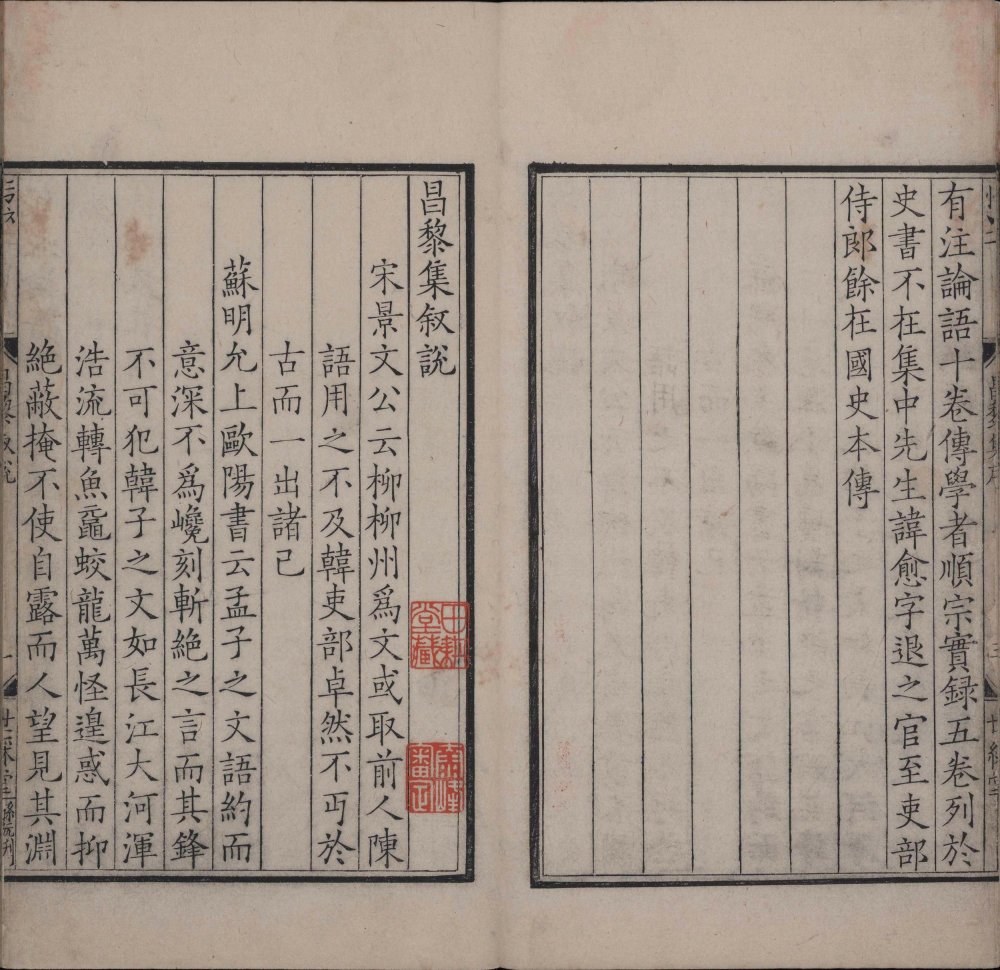 有注論語十卷傳學者順宗實録五卷列於
史書不在集中先生諱愈字退之官至吏部
侍郎餘在國史本傳
昌黎集叙說
宋景文公云柳柳州爲文或取前人陳
語用之不及韓吏部卓然不丐於
古而一出諸己
蘇明允上歐陽書云孟子之文語約而
意深不爲巉刻斬絶之言而其鋒
不可犯韓子之文如長江大河渾
浩流轉魚黿蛟龍萬怪遑惑而抑
絶蔽掩不使自露而人望見其淵